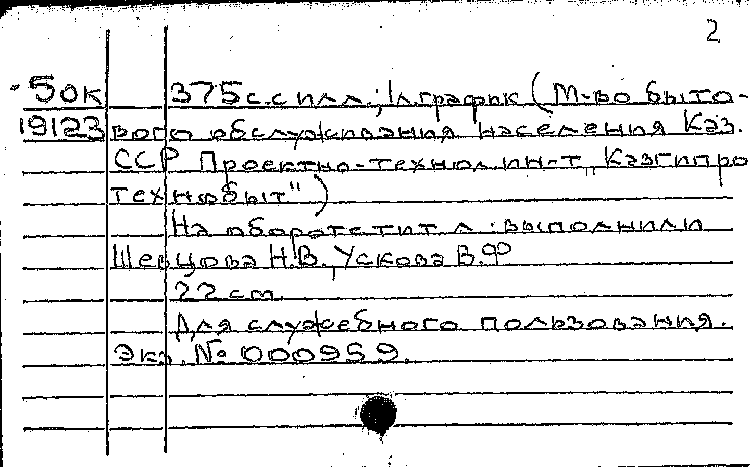 2
50к 375с.с илл.; 1л.график (М-во быто-
19123 вого обслуживания населения Каз.
ССР Проектно-технол.ин-т „Казгипро
технобыт")
На обороте тит.л.:выполнили
Шевцова Н.В., Ускова В.Ф
22 см.
Для служебного пользования.
Экз. № 000959.